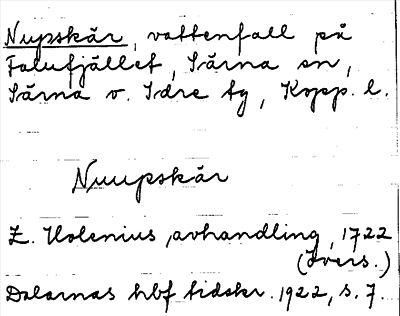 Nupskär, vattenfall på
Falufjället, Särna sn,
Särna o. Idre tg, Kopp. l.
Nuupskär
Z. Holenius, avhandling, 1722
(Övers.)
Dalarnas hbf tidskr. 1922, s. 7.